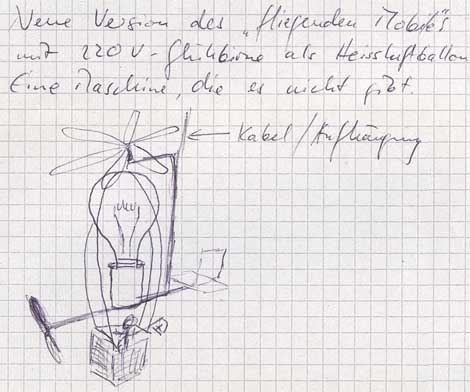 Neue Version des „fliegenden Mobile's
mit 220 V-Glühbirne als Heissluftballon
Eine Maschine, die es nicht gibt.
Kabel/Aufhängung